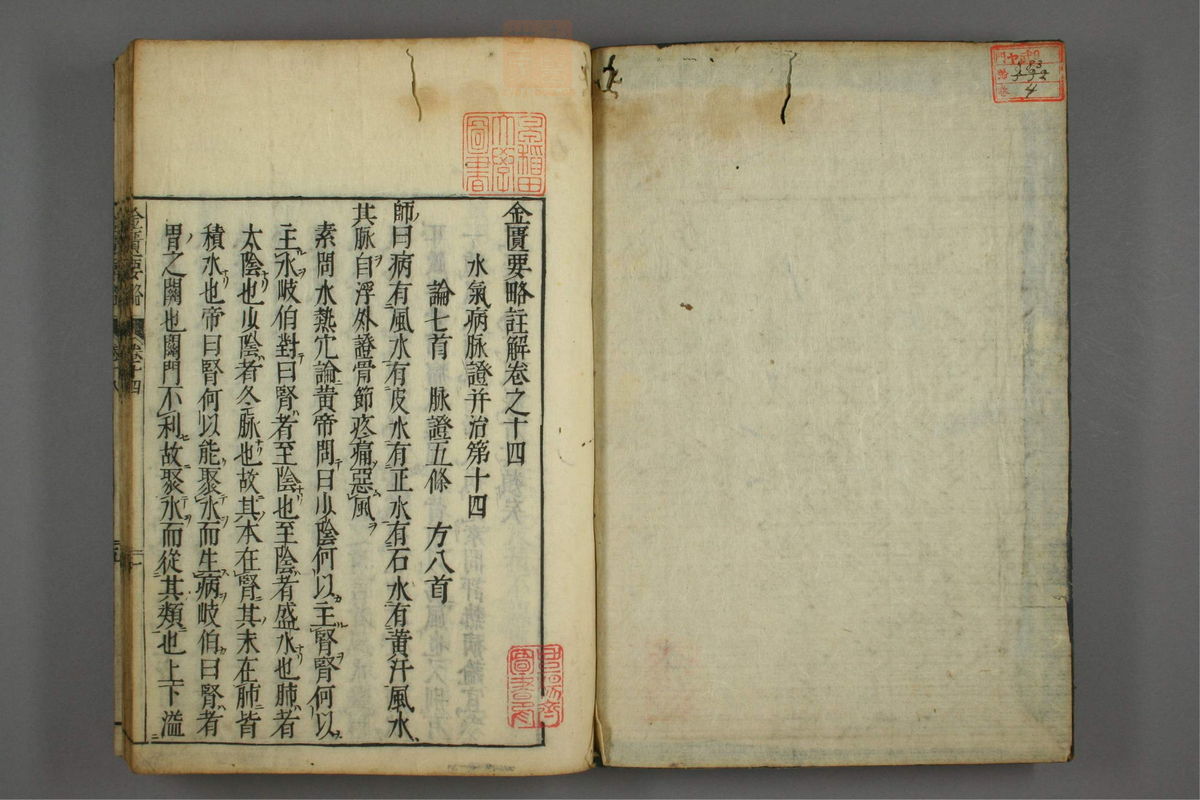 金匱要略註解卷之十四
水氣病脉證并治第十四
論七首 脉證五條 方八首
師曰病有風水有皮水有正水有石水有黃汗風水
其脉自浮外證骨節疼痛惡風
素問水熱穴論黃帝問曰少陰何以主腎腎何以
主水岐伯對曰腎者至陰也至陰者盛水也肺者
太陰也少陰者冬脉也故其本在腎其末在肺皆
積水也帝曰腎何以能聚水而生病岐伯曰腎者
胃之關也關門不利故聚水而從其類也上下溢
早稻田
大學
圖書
4